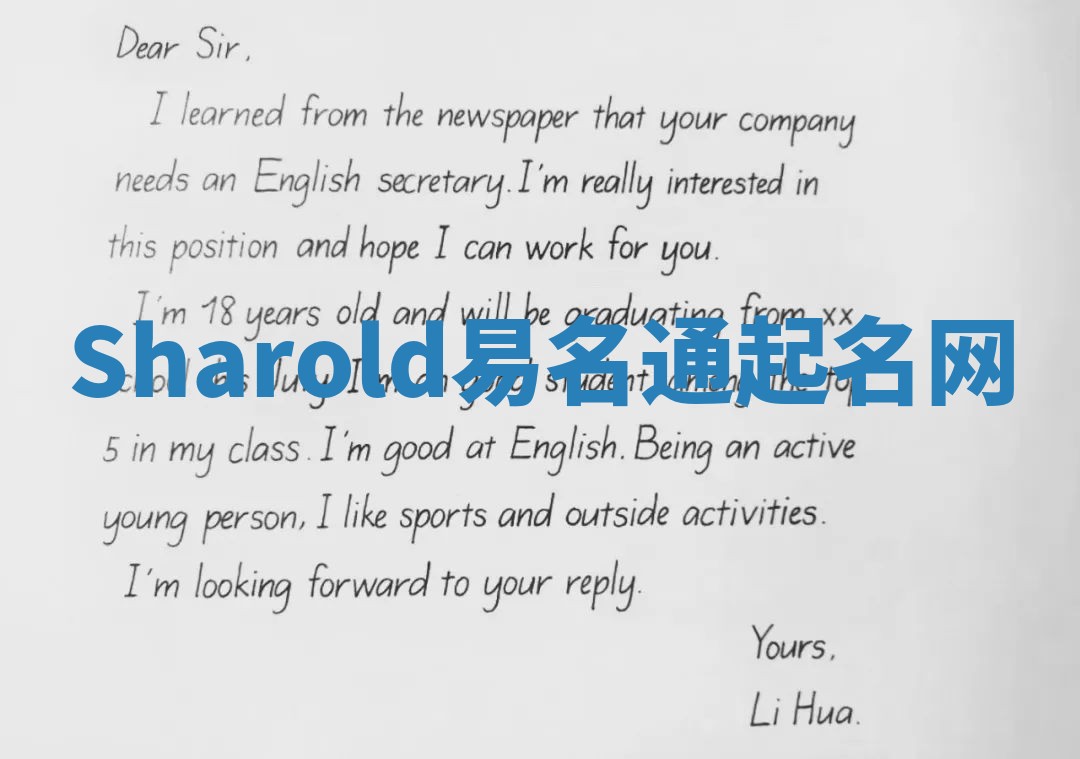 Dear Sir,
I learned from the newspaper that your company
needs an English secretary. I'm really interested in
this position and hope I can work for you.
I'm 18 years old and will be graduating from xx
Sharold易名通起名网
school this July. I'm an good student among the top
5 in my class. I'm good at English. Being an active
young person, I like sports and outside activities.
I'm looking forward to your reply.
Yours,
Li Hua.